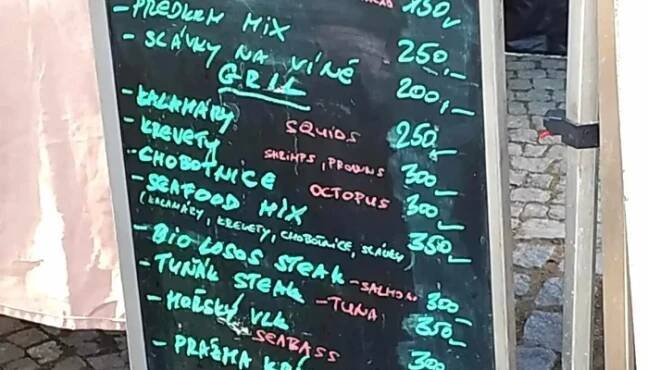 150,-
- PŘEDKRM MIX 250,-
- SLÁVKY NA VÍNĚ 200,-
GRIL
- KALAMÁRY SQUIDS 250,-
- KREVETY SHRIMPS, PROWNS 300,-
- CHOBOTNICE OCTOPUS 300,-
- SEAFOOD MIX 350,-
(KALAMÁRY, KREVETY, CHOBOTNICE, SLÁVKY)
- BIO LOSOS STEAK - SALMON 300,-
- TUŇÁK STEAK - TUNA 350,-
- MOŘSKÝ VLK SEABASS 300,-
- PRAŽMA